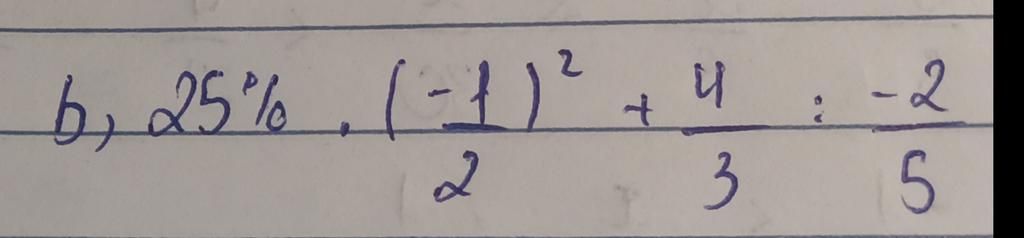 b, 25% . (-1/2)² + 4/3 : -2/5